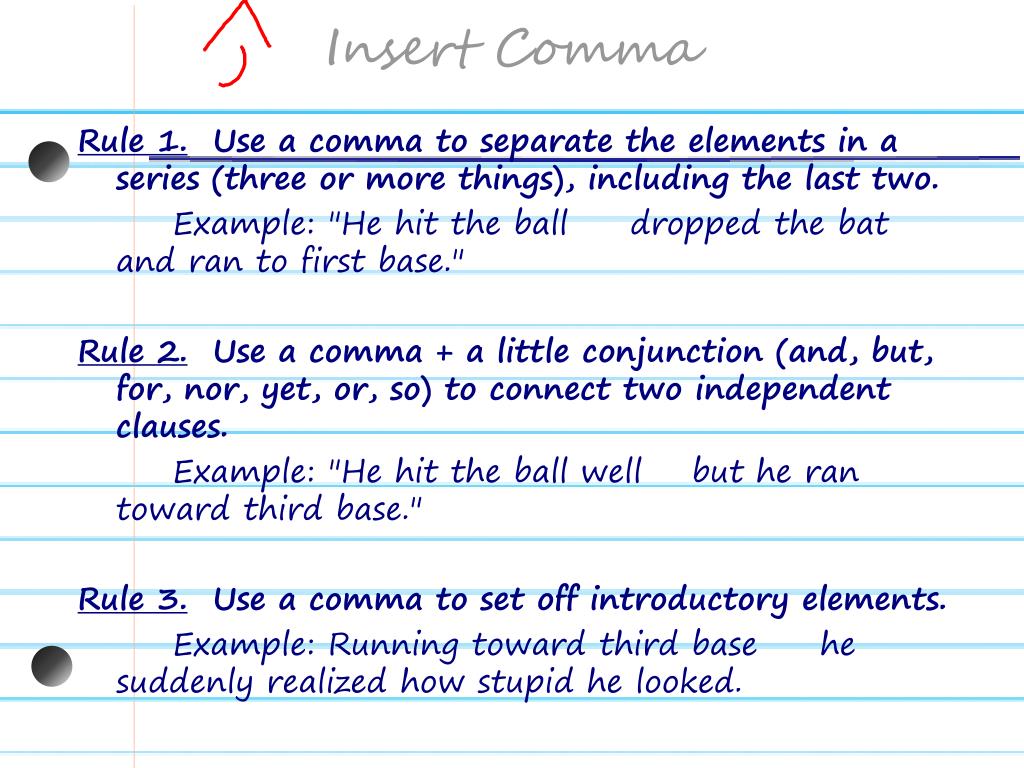 Insert Comma
Rule 1.  Use a comma to separate the elements in a
series (three or more things), including the last two.
Example: "He hit the ball      dropped the bat
and ran to first base."
Rule 2.  Use a comma + a little conjunction (and, but,
for, nor, yet, or, so) to connect two independent
clauses.
Example: "He hit the ball well     but he ran
toward third base."
Rule 3.  Use a comma to set off introductory elements.
Example: Running toward third base      he
suddenly realized how stupid he looked.